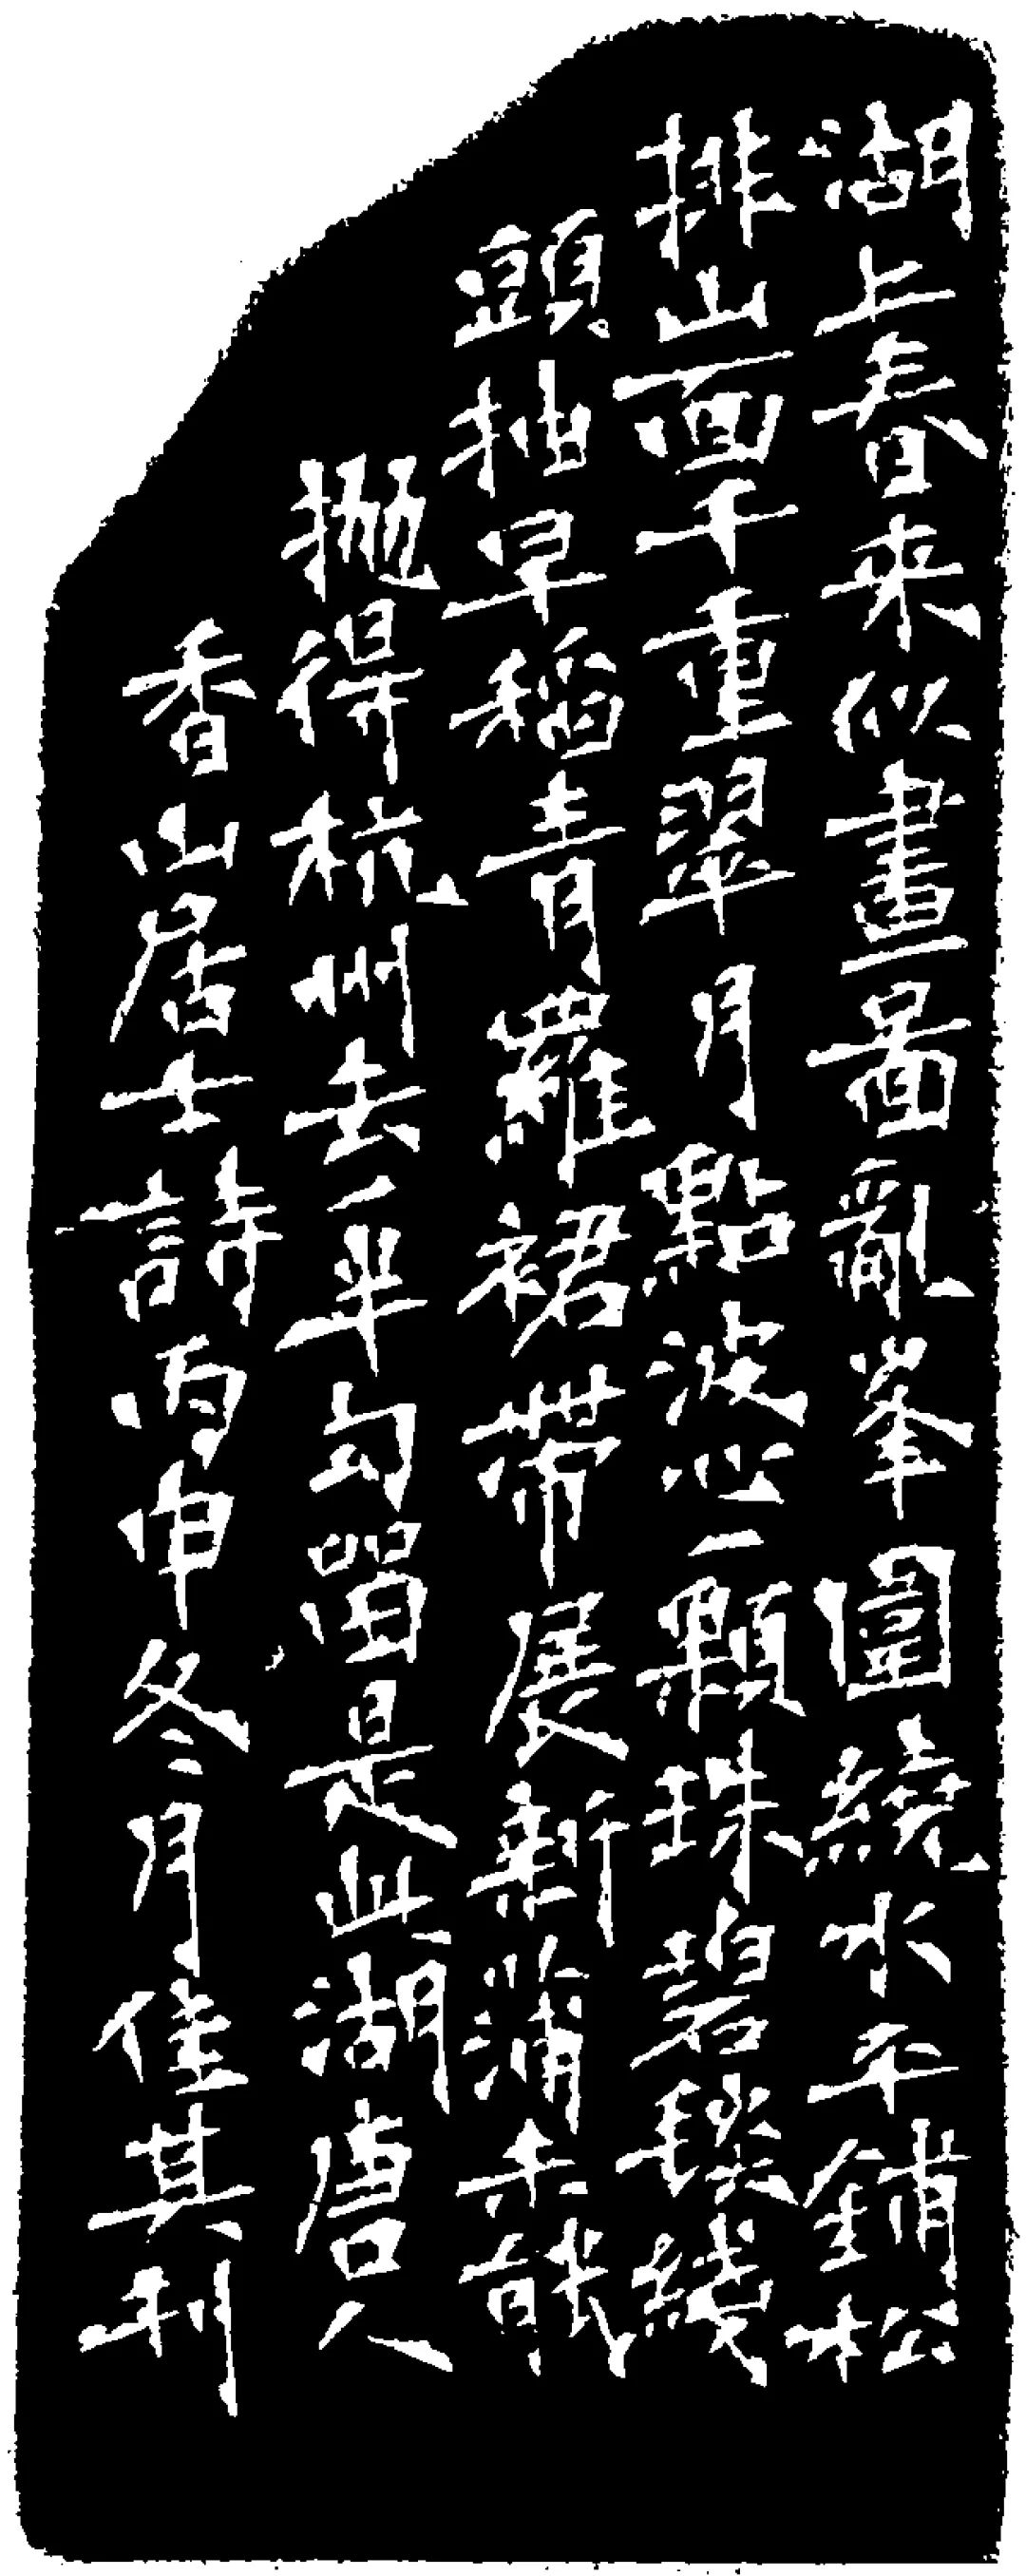 湖上春來似畫圖亂峯圍繞水平鋪松
排山面千重翠月點波心一顆珠碧毯綫
頭抽早稻青羅裙帶展新蒲未能
拋得杭州去一半勾留是此湖唐人
香山居士詩丙申冬月佳其利